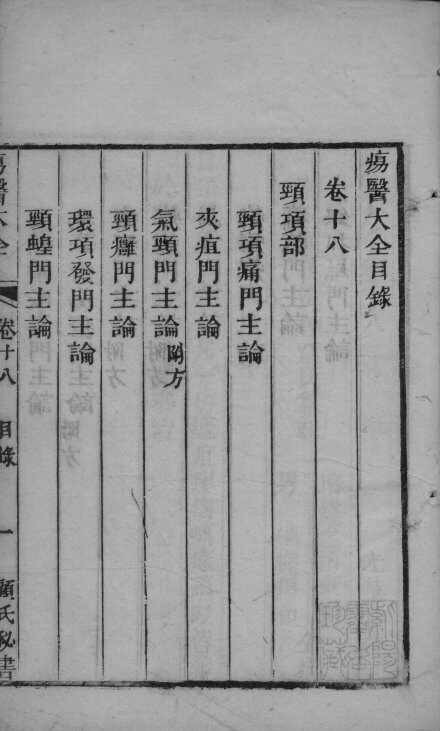 瘍醫大全目錄
卷十八
頸項部
頸項痛門主論
夾疽門主論
氣頸門主論 附方
頸癰門主論
環項發門主論
頸蝗門主論
瘍醫大全 卷十八 目錄 一 顧氏秘書